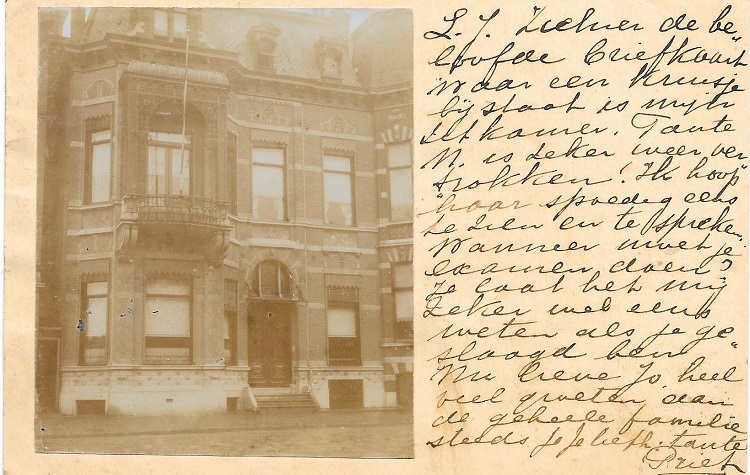 L. J. Ziehier de be"
loofde briefkaart
Waar een kruisje
bijstaat is mijn
zitkamer. Tante
N. is zeker weer ver
trokken! Ik hoop
haar spoedig eens
te zien en te spreken.
Wanneer moet je
examen doen?
Je laat het mij
zeker wel eens
weten als je ge"
slaagd ben
Nu lieve Jo heel
veel groeten aan
de geheele familie
steeds je liefh. tante
Priet